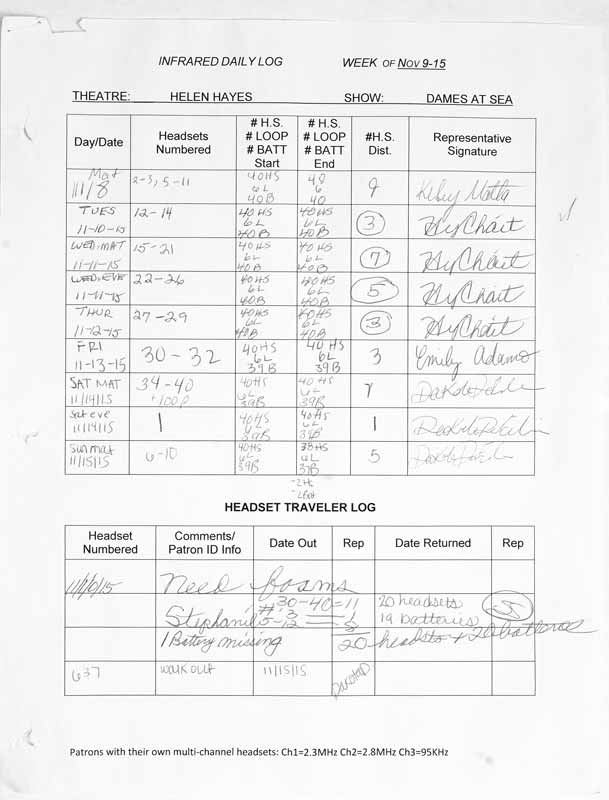 INFRARED DAILY LOG WEEK OF NOV 9-15
THEATRE: HELEN HAYES SHOW: DAMES AT SEA
Day/Date Headsets Numbered # H.S. # LOOP # BATT Start # H.S. # LOOP # BATT End #H.S. Dist. Representative Signature
Mat 11/8 2-3, 5-11 40HS 6L 40B 40 6 40 9
TUES 11-10-15 12-14 40HS 6L 40B 40HS 6L 40B 3
WED.MAT 11-11-15 15-21 40HS 6L 40B 40HS 6L 40B 7
WED.EVE 11-11-15 22-26 40HS 6L 40B 40HS 6L 40B 5
THUR 11-12-15 27-29 40HS 6L 40B 40HS 6L 40B 3
FRI 11-13-15 30-32 40HS 6L 39B 40HS 6L 39B 3 Emily Adams
SAT MAT 11/14/15 34-40 +loop 40HS 6L 39B 40HS 6L 39B 7
Sat eve 11/14/15 1 40HS 6L 39B 40HS 6L 39B 1
Sun mat 11/15/15 6-10 40HS 6L 39B 38HS 6L 37B 5
-2HS
HEADSET TRAVELER LOG
Headset Numbered Comments/ Patron ID Info Date Out Rep Date Returned Rep
11/10/15 Need foams
# 30-40=11 20 headsets
Stephanie 5-12 19 batteries
1 Battery missing 20 headsets + 20 batteries
637 WALK OUT 11/15/15 Dakota
Patrons with their own multi-channel headsets: Ch1=2.3MHz Ch2=2.8MHz Ch3=95KHz